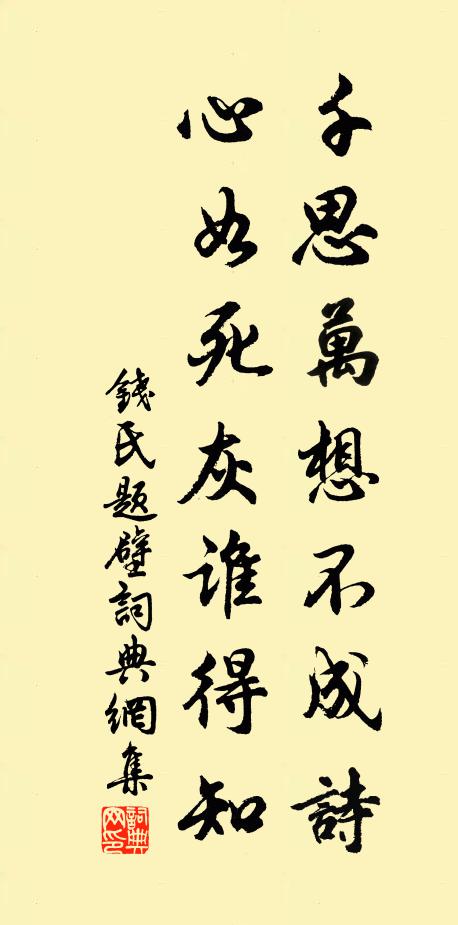 千思萬想不成詩
心如死灰誰得知
錢氏題壁詞典網集
詞典
网印